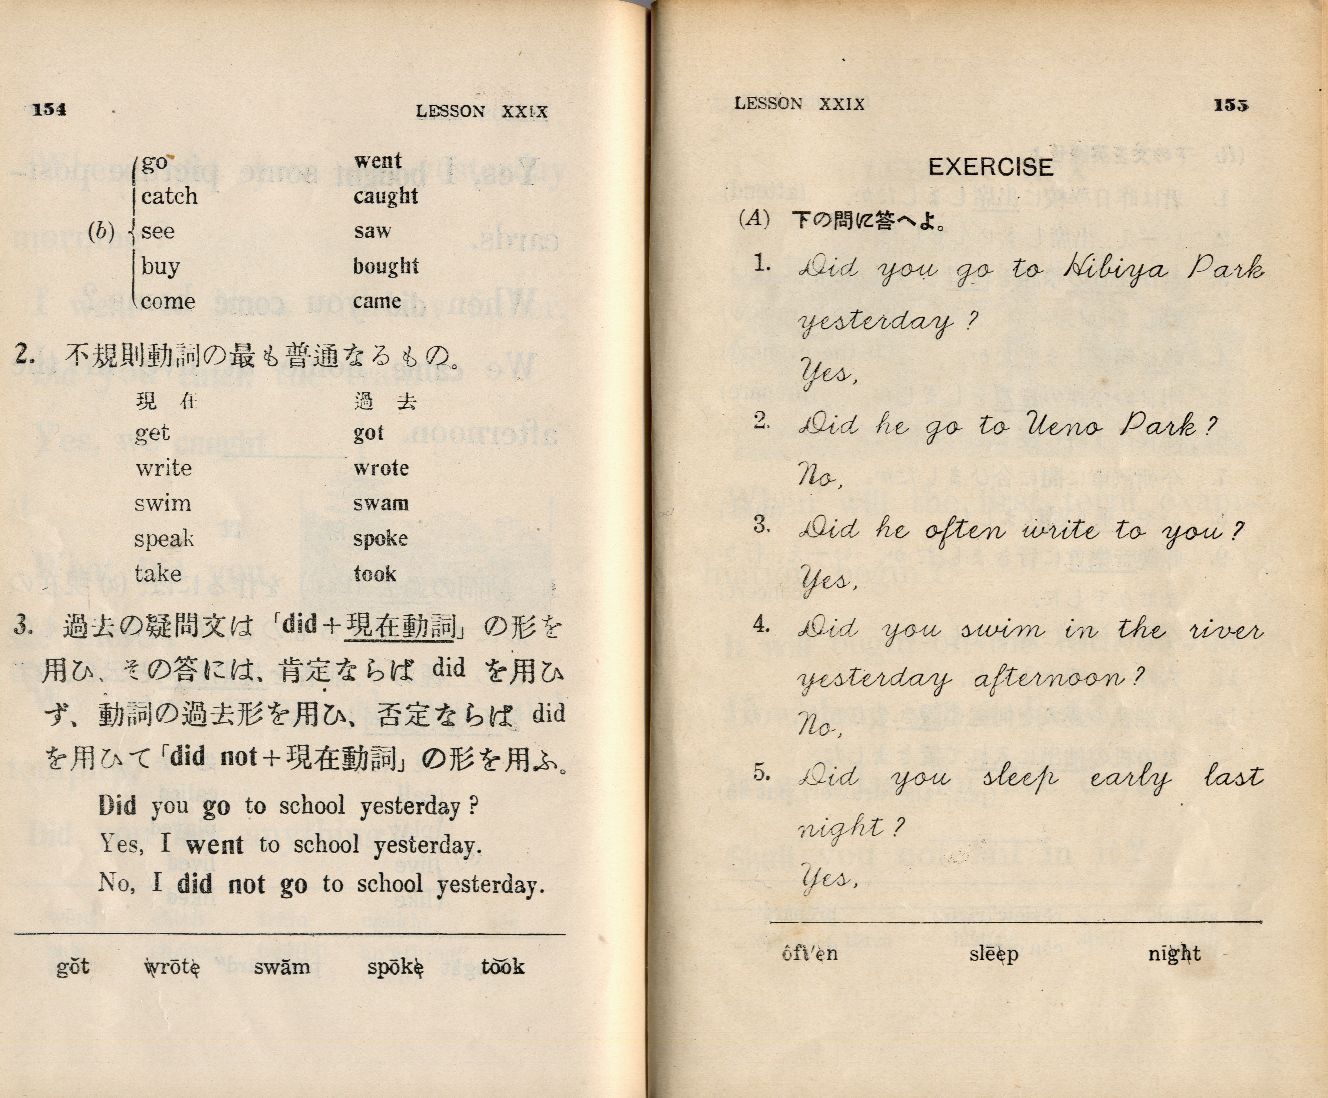 154 LESSON XXIX
go went
catch caught
(b) see saw
buy bought
come came
2. 不規則動詞の最も普通なるもの。
現在 過去
get got
write wrote
swim swam
speak spoke
take took
3. 過去の疑問文は「did+現在動詞」の形を
用ひ、その答には、肯定ならば did を用ひ
ず、動詞の過去形を用ひ、否定ならば did
を用ひて「did not+現在動詞」の形を用ふ。
Did you go to school yesterday?
Yes, I went to school yesterday.
No, I did not go to school yesterday.
gŏt wrōte swăm spōke to͝ok
LESSON XXIX 155
EXERCISE
(A) 下の問に答へよ。
1. Did you go to Hibiya Park
yesterday?
Yes,
2. Did he go to Ueno Park?
No,
3. Did he often write to you?
Yes,
4. Did you swim in the river
yesterday afternoon?
No,
5. Did you sleep early last
night?
Yes,
ôft'en slēep nīght